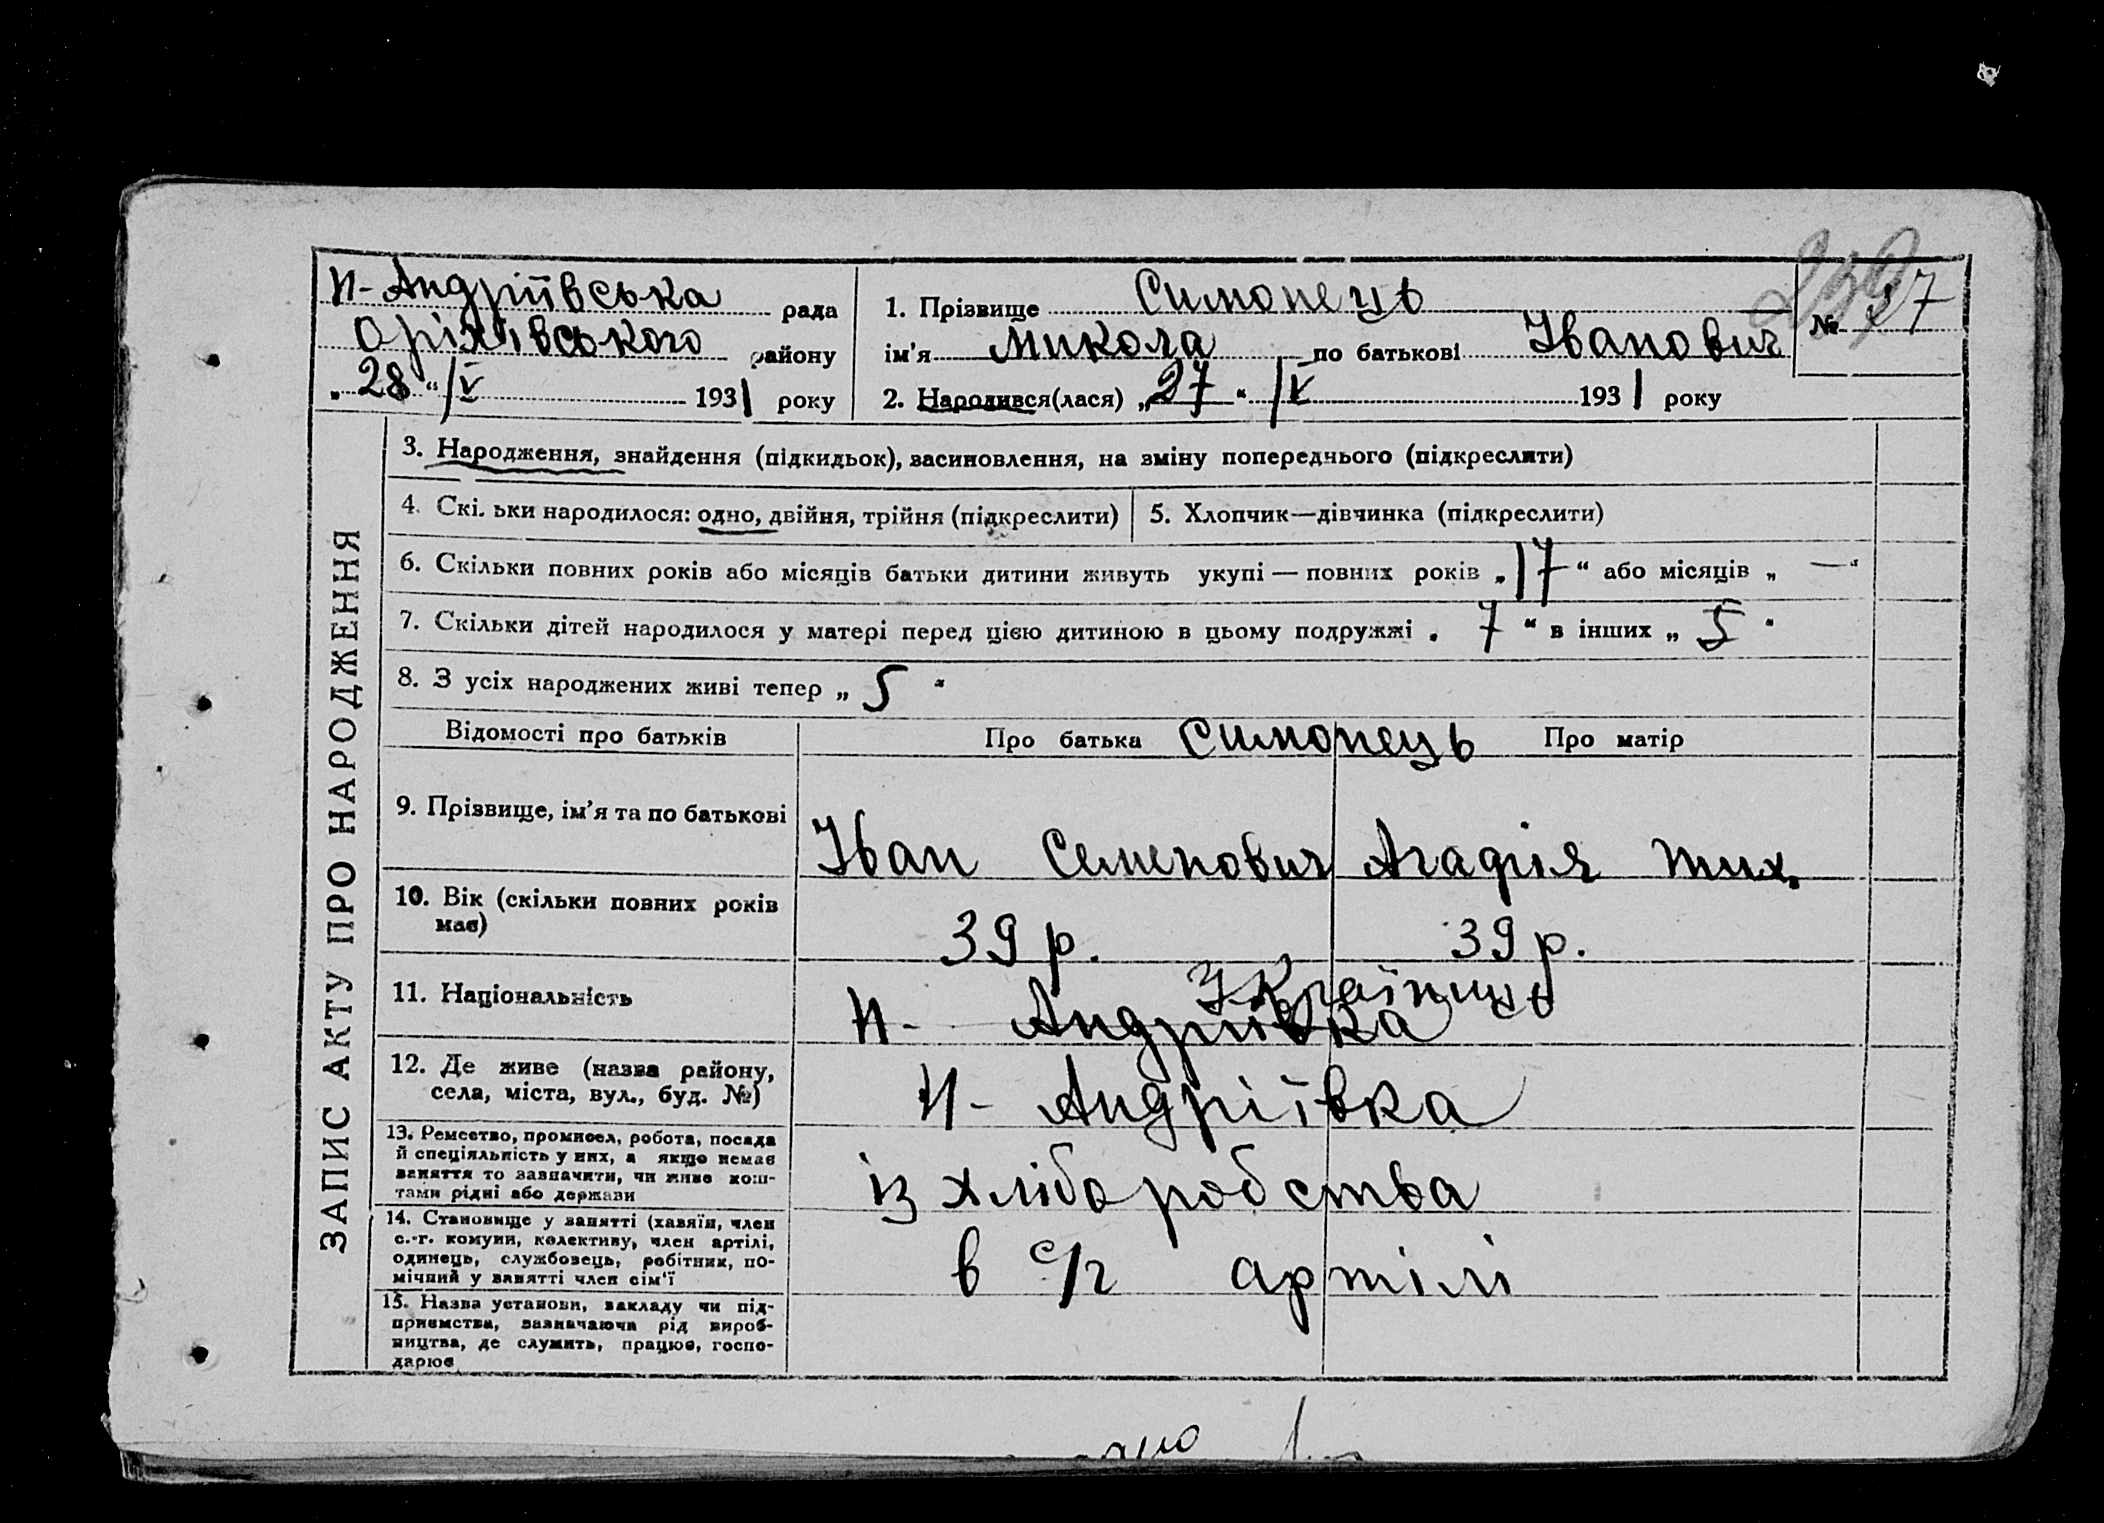 Н-Андріївська рада
Оріхівського району
„28“ /V 1931 року
1. Прізвище Симонець
ім'я Микола по батькові Іванович
2. Народився(лася) „27“ /V 1931 року
№ 37
ЗАПИС АКТУ ПРО НАРОДЖЕННЯ
3. Народження, знайдення (підкидьок), засиновлення, на зміну попереднього (підкреслити)
4. Скі. ьки народилося: одно, двійня, трійня (підкреслити)
5. Хлопчик—дівчинка (підкреслити)
6. Скільки повних років або місяців батьки дитини живуть укупі — повних років „17“ або місяців „ — “
7. Скільки дітей народилося у матері перед цією дитиною в цьому подружжі „ 7 “ в інших „ 5 “
8. З усіх народжених живі тепер „ 5 “
Відомості про батьків Про батька Симонець Про матір
9. Прізвище, ім'я та по батькові Іван Семенович Агафія Тих.
10. Вік (скільки повних років
має) 39 р. 39 р.
Українець
11. Національність Н- Андріївка
12. Де живе (назва району,
села, міста, вул., буд. №) Н- Андріївка
13. Ремество, промисел, робота, посада
й спеціяльність у них, а якщо немає
заняття то зазначити, чи живе кош-
тами рідні або держави
із хліборобства
14. Становище у занятті (хазяїн, член
с.-г. комуни, колективу, член артілі,
одинець, службовець, робітник, по-
мічний у занятті член сім'ї
в с/г артілі
15. Назва установи, закладу чи під-
приємства, зазначаючи рід вироб-
ництва, де служить, працює, госпо-
дарює